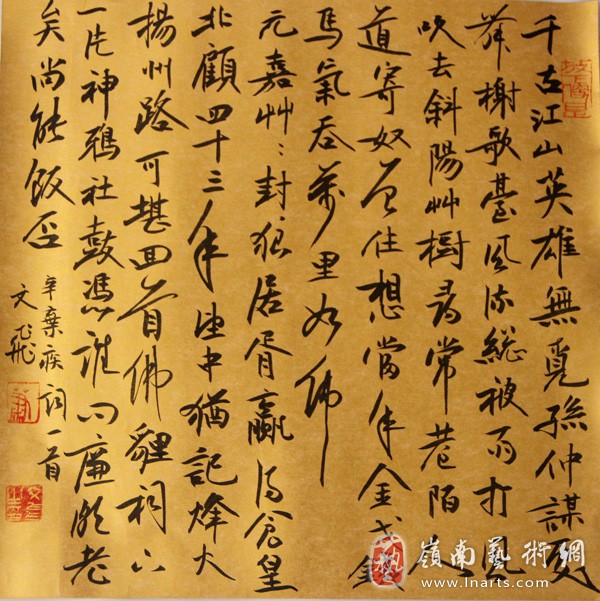 千古江山英雄無覓孫仲謀處
舞榭歌臺風流總被雨打風
吹去斜陽艸樹尋常巷陌人
道寄奴曾住想當年金戈鐵
馬氣吞萬里如虎
元嘉艸〻封狼居胥贏得倉皇
北顧四十三年望中猶記烽火
揚州路可堪回首佛貍祠下
一片神鴉社鼓憑誰問廉頗老
矣尚能飯否
辛棄疾詞一首
文飛
嶺南藝術網
www.lnarts.com